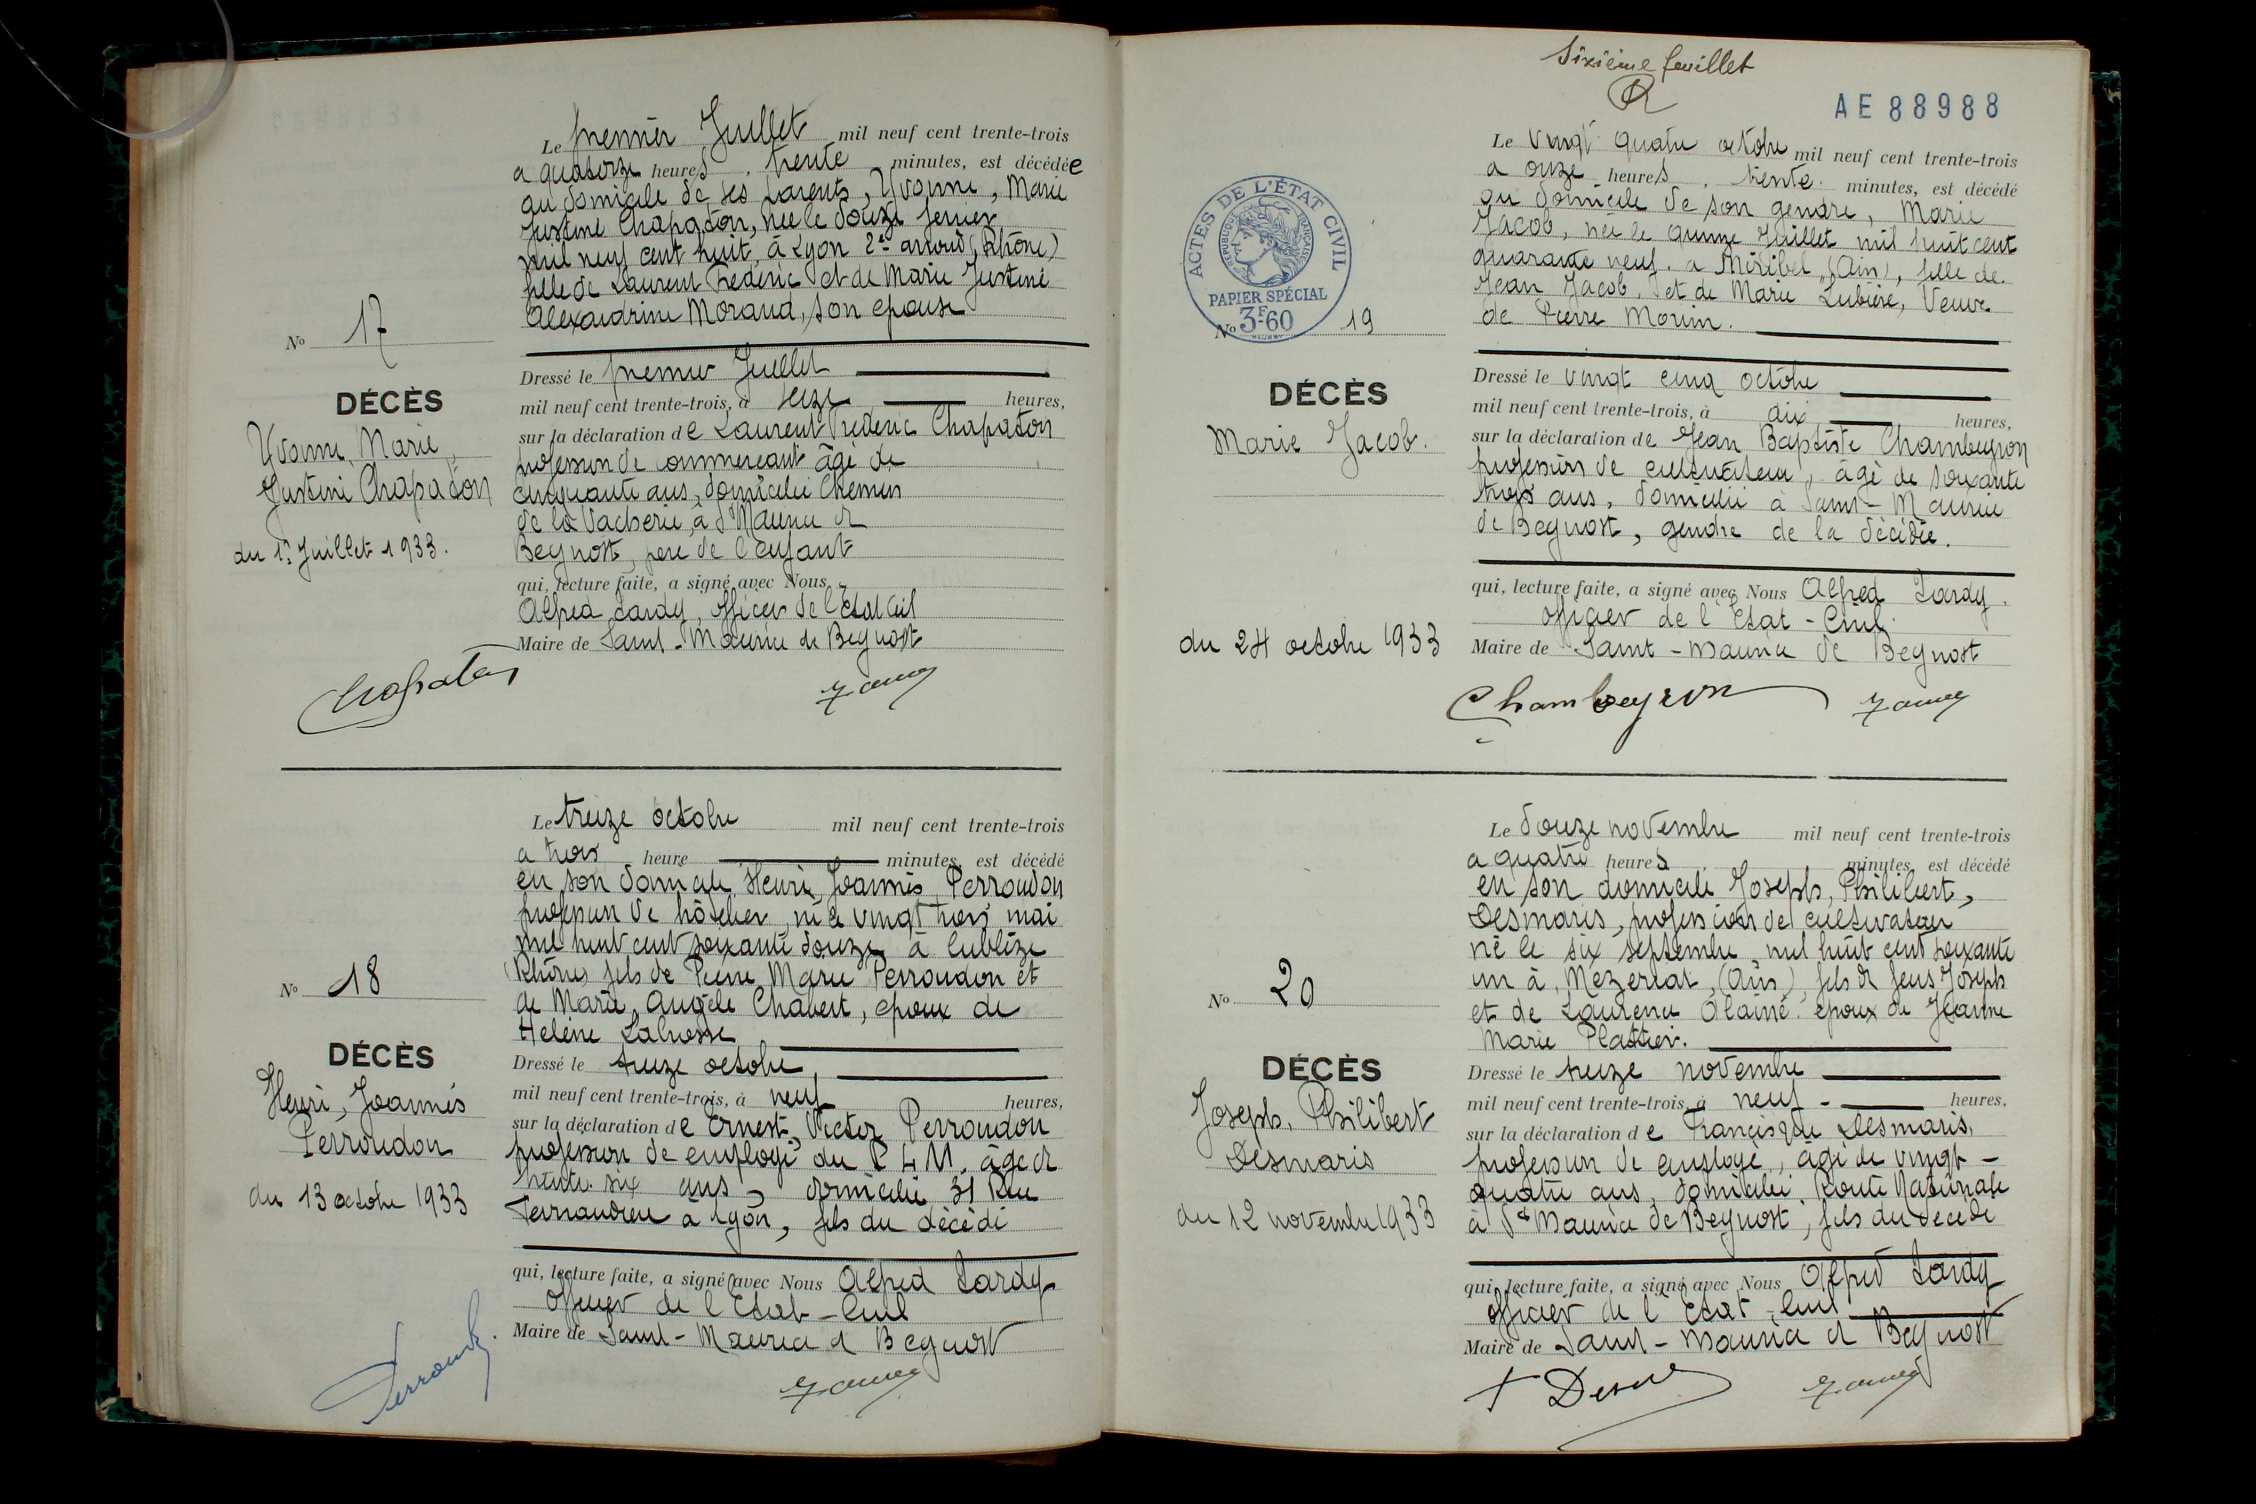 Le premier Juillet mil neuf cent trente-trois
a quatorze heures, trente minutes, est décédée
au domicile de ses parents, Yvonne, Marie
Justine Chapaton, née le douze
mil neuf cent huit, à Lyon 2e arrond (Rhône)
fille de Laurent Frédéric et de Marie Justine
Alexandrine Morand, son epouse
No 17
DÉCÈS
Yvonne, Marie,
Justine Chapaton
du 1er Juillet 1933.
Dressé le premier Juillet
mil neuf cent trente-trois, à seize heures,
sur la déclaration de Laurent Frédéric Chapaton
profession de commercant âgé de
cinquante ans, domicilié Chemin
de la Vacherie, à St Maurice de
Beynost, pere de l'enfant
qui, lecture faite, a signé avec Nous
Alfred Jardy, officier de l'Etat Civil
Maire de Saint-Maurice de Beynost
Chapaton
Le treize octobre mil neuf cent trente-trois
a trois heure minutes, est décédé
en son domicile Henri, Joannès Perroudon
profession de hôtelier, né le vingt trois mai
mil huit cent soixante douze à Cublize
(Rhône) fils de Pierre Marie Perroudon et
de Marie, Angèle Chabert, epoux de
Hélène Labrosse
No 18
DÉCÈS
Henri, Joannès
Perroudon
du 13 octobre 1933
Dressé le treize octobre
mil neuf cent trente-trois, à neuf heures,
sur la déclaration de Ernest, Victor Perroudon
profession de employé du P L M, âgé de
trente six ans, domicilié 31 Rue
à Lyon, fils du décédé
qui, lecture faite, a signé avec Nous Alfred Jardy
officier de l'Etat-Civil
Maire de Saint-Maurice de Beynost
Perroudon
Sixième feuillet
AE 88988
Le vingt quatre octobre mil neuf cent trente-trois
a onze heures, trente minutes, est décédé
au domicile de son gendre, Marie
Jacob, née le quinze Juillet mil huit cent
quarante neuf, a Miribel (Ain), fille de
Jean Jacob, et de Marie Lubière, Veuve
de Pierre Mounn.
ACTES DE L'ÉTAT CIVIL
RÉPUBLIQUE FRANÇAISE
PAPIER SPÉCIAL
3F60
No 19
DÉCÈS
Marie Jacob.
du 24 octobre 1933
Dressé le vingt cinq octobre
mil neuf cent trente-trois, à dix heures,
sur la déclaration de Jean Baptiste Chambeyron
profession de cultivateur, âgé de soixante
trois ans, domicilié à Saint-Maurice
de Beynost, gendre de la décédée.
qui, lecture faite, a signé avec Nous Alfred Jardy.
officier de l'Etat-Civil.
Maire de Saint-Maurice de Beynost
Chambeyron
Le douze novembre mil neuf cent trente-trois
a quatre heures minutes, est décédé
en son domicile Joseph, Philibert,
Desmaris, profession de cultivateur
né le six septembre mil huit cent soixante
un à Mézeriat, (Ain), fils de feus Joseph
et de Laurence Alainé. epoux de Jeanne
Marie Plattier.
No 20
DÉCÈS
Joseph, Philibert
Desmaris
du 12 novembre 1933
Dressé le treize novembre
mil neuf cent trente-trois, à neuf heures,
sur la déclaration de Francisque Desmaris,
profession de employé, âgé de vingt-
quatre ans, domicilié, Route Nationale
à St Maurice de Beynost, fils du décédé
qui, lecture faite, a signé avec Nous Alfred Jardy
officier de l'Etat-Civil
Maire de Saint-Maurice de Beynost